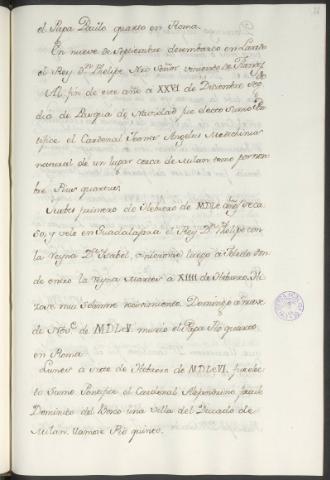 el Papa Paulo quarto en Roma.
En nueve de Septiembre desembarco en Laredo
el Rey Dn Phelipe Nro Señor viniendo de Flandes
Al fin de este año a XXVI de Diciembre 2o
dia de Pasqua de Navidad fue electo Sumo Pon
tifice el Cardenal Joana Angelus Medechinus
natural de un lugar cerca de Milan tomo por nom
bre Pius quartus.
Jueves primero de Hebrero de MDLX años se ca
so, y velo en Guadalajara el Rey Dn Phelipe con
la Reyna Da Isabel, vinieron luego a Toledo don
de entro la Reyna Martes a XIII de Hebrero. Hi
zose muy solemne recivimiento. Domingo a nueve
de de MDLXV. murio el Papa Pio quarto
en Roma.
Lunes a siete de Hebrero de MDLXVI. fue elec
to Sumo Pontifice el Cardenal Alexandrino frayle
Dominico del Bosco una villa del Ducado de
Milan. llamose Pio quinto.